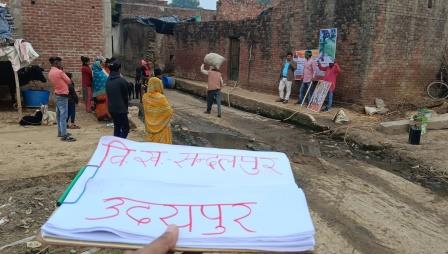 वि.स. सन्दलपुर
उदयपुर